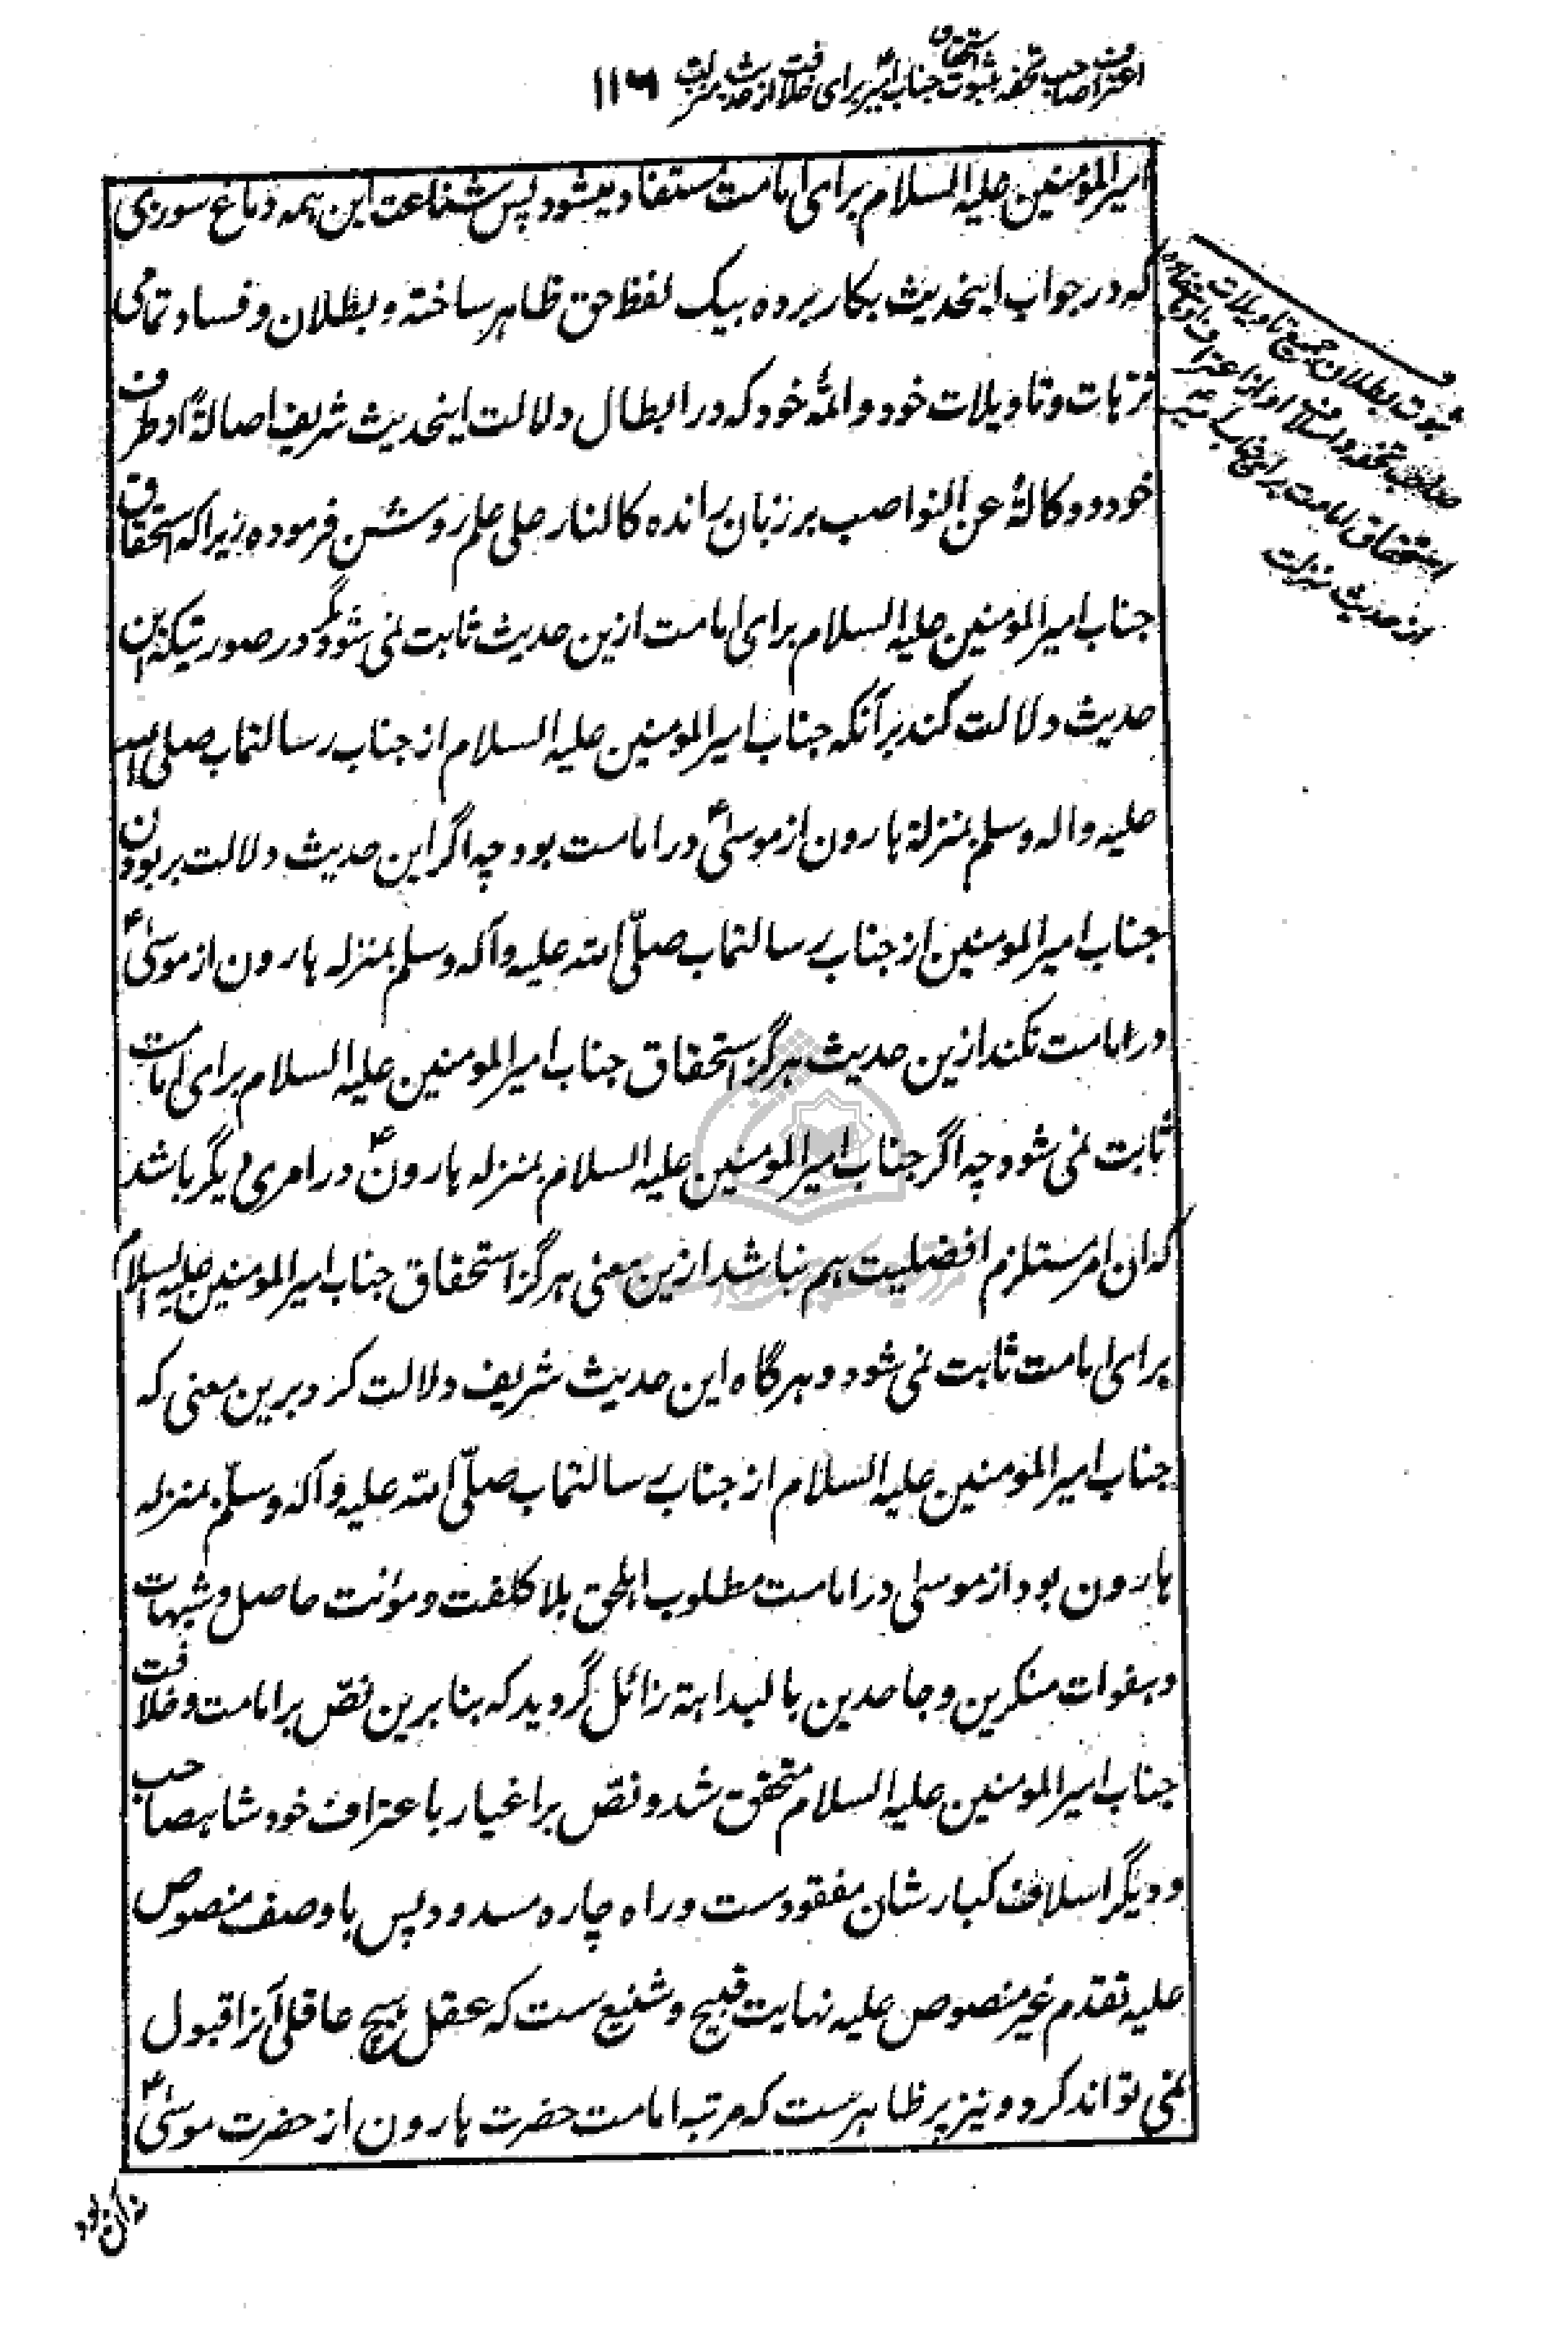 اعتراف صاحب تحفه بثبوت استحقاق جناب امیرؑ برای خلافت از حدیث منزلت ۱۱۶
امیرالمومنین علیه السلام برای امامت مستفاد میشود پس شناعت این همه دماغ سوزی
که در جواب اینحدیث بکار برده بیک لفظ حق ظاهر ساخته و بطلان و فساد تمامی
ترّهات و تاویلات خود و ائمهٔ خود که در ابطال دلالت اینحدیث شریف اصالةً از طرف
خود و وکالةً عن النواصب بر زبان رانده کالنار علی علم روشن فرموده زیرا که استحقاق
جناب امیرالمومنین علیه السلام برای امامت ازین حدیث ثابت نمی شود مگر در صورتیکه این
حدیث دلالت کند بر آنکه جناب امیرالمومنین علیه السلام از جناب رسالتماب صلی الله
علیه واله وسلم بمنزلة هارون از موسیؑ در امامت بود چه اگر این حدیث دلالت بر بودن
جناب امیرالمومنین از جناب رسالتماب صلّی الله علیه وآله وسلم بمنزله هارون از موسیؑ
در امامت نکند ازین حدیث هرگز استحقاق جناب امیرالمومنین علیه السلام برای امامت
ثابت نمی شود چه اگر جناب امیرالمومنین علیه السلام بمنزله هارونؑ در امری دیگر باشد
که ان امر مستلزم افضلیت هم نباشد ازین معنی هرگز استحقاق جناب امیرالمومنین علیه السلام
برای امامت ثابت نمی شود و هرگاه این حدیث شریف دلالت کرد برین معنی که
جناب امیرالمومنین علیه السلام از جناب رسالتماب صلّی الله علیه وآله وسلّم بمنزله
هارون بود از موسی در امامت مطلوب اهلحق بلا کلفت و مؤنت حاصل و شبهات
و هفوات منکرین و جاحدین بالبداهة زائل گردید که بنا برین نصّ بر امامت و خلافت
جناب امیرالمومنین علیه السلام متحقق شد و نصّ بر اغیار باعتراف خود شاهصاحب
و دیگر اسلاف کبار شان مفقودست و راه چاره مسدود پس با وصف منصوص
علیه تقدم غیر منصوص علیه نهایت قبیح و شنیع ست که عقل هیچ عاقلی آنرا قبول
نمی تواند کرد و نیز پر ظاهرست که مرتبه امامت حضرت هارون از حضرت موسیؑ
ثبوت بطلان جمیع تاویلات
صاحب تحفه و اسلاف او از اعتراف او باستفاده
استحقاق امامت برای جناب امیرؑ
از حدیث منزلت